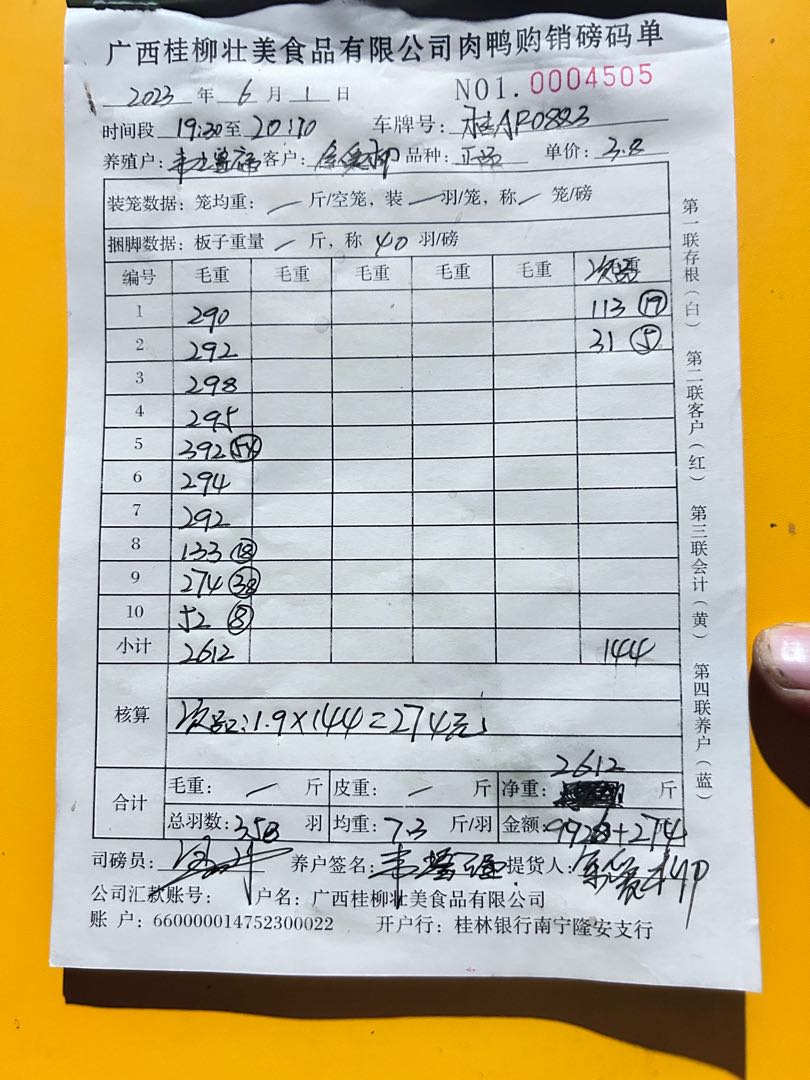 广西桂柳壮美食品有限公司肉鸭购销磅码单
2023 年 6 月 1 日 NO1.0004505
时间段 19:30至20:10 车牌号: 桂AR0883
养殖户: 客户: 品种: 正品 单价: 3.8
装笼数据: 笼均重: / 斤/空笼, 装 / 羽/笼, 称 / 笼/磅
捆脚数据: 板子重量 / 斤, 称 40 羽/磅
编号 毛重 毛重 毛重 毛重 毛重 次品
1 290 113 19
2 292 31 5
3 298
4 295
5 392 54
6 294
7 292
8 133 18
9 274 38
10 52 8
小计 2612 144
核算 次品:1.9×144=274元
2612
合计 毛重: / 斤 皮重: / 斤 净重: 斤
总羽数: 358 羽 均重: 7.3 斤/羽 金额: 9926+274
司磅员: 养户签名: 提货人:
公司汇款账号: 户名: 广西桂柳壮美食品有限公司
账 户: 660000014752300022 开户行: 桂林银行南宁隆安支行
第一联存根(白) 第二联客户(红) 第三联会计(黄) 第四联养户(蓝)